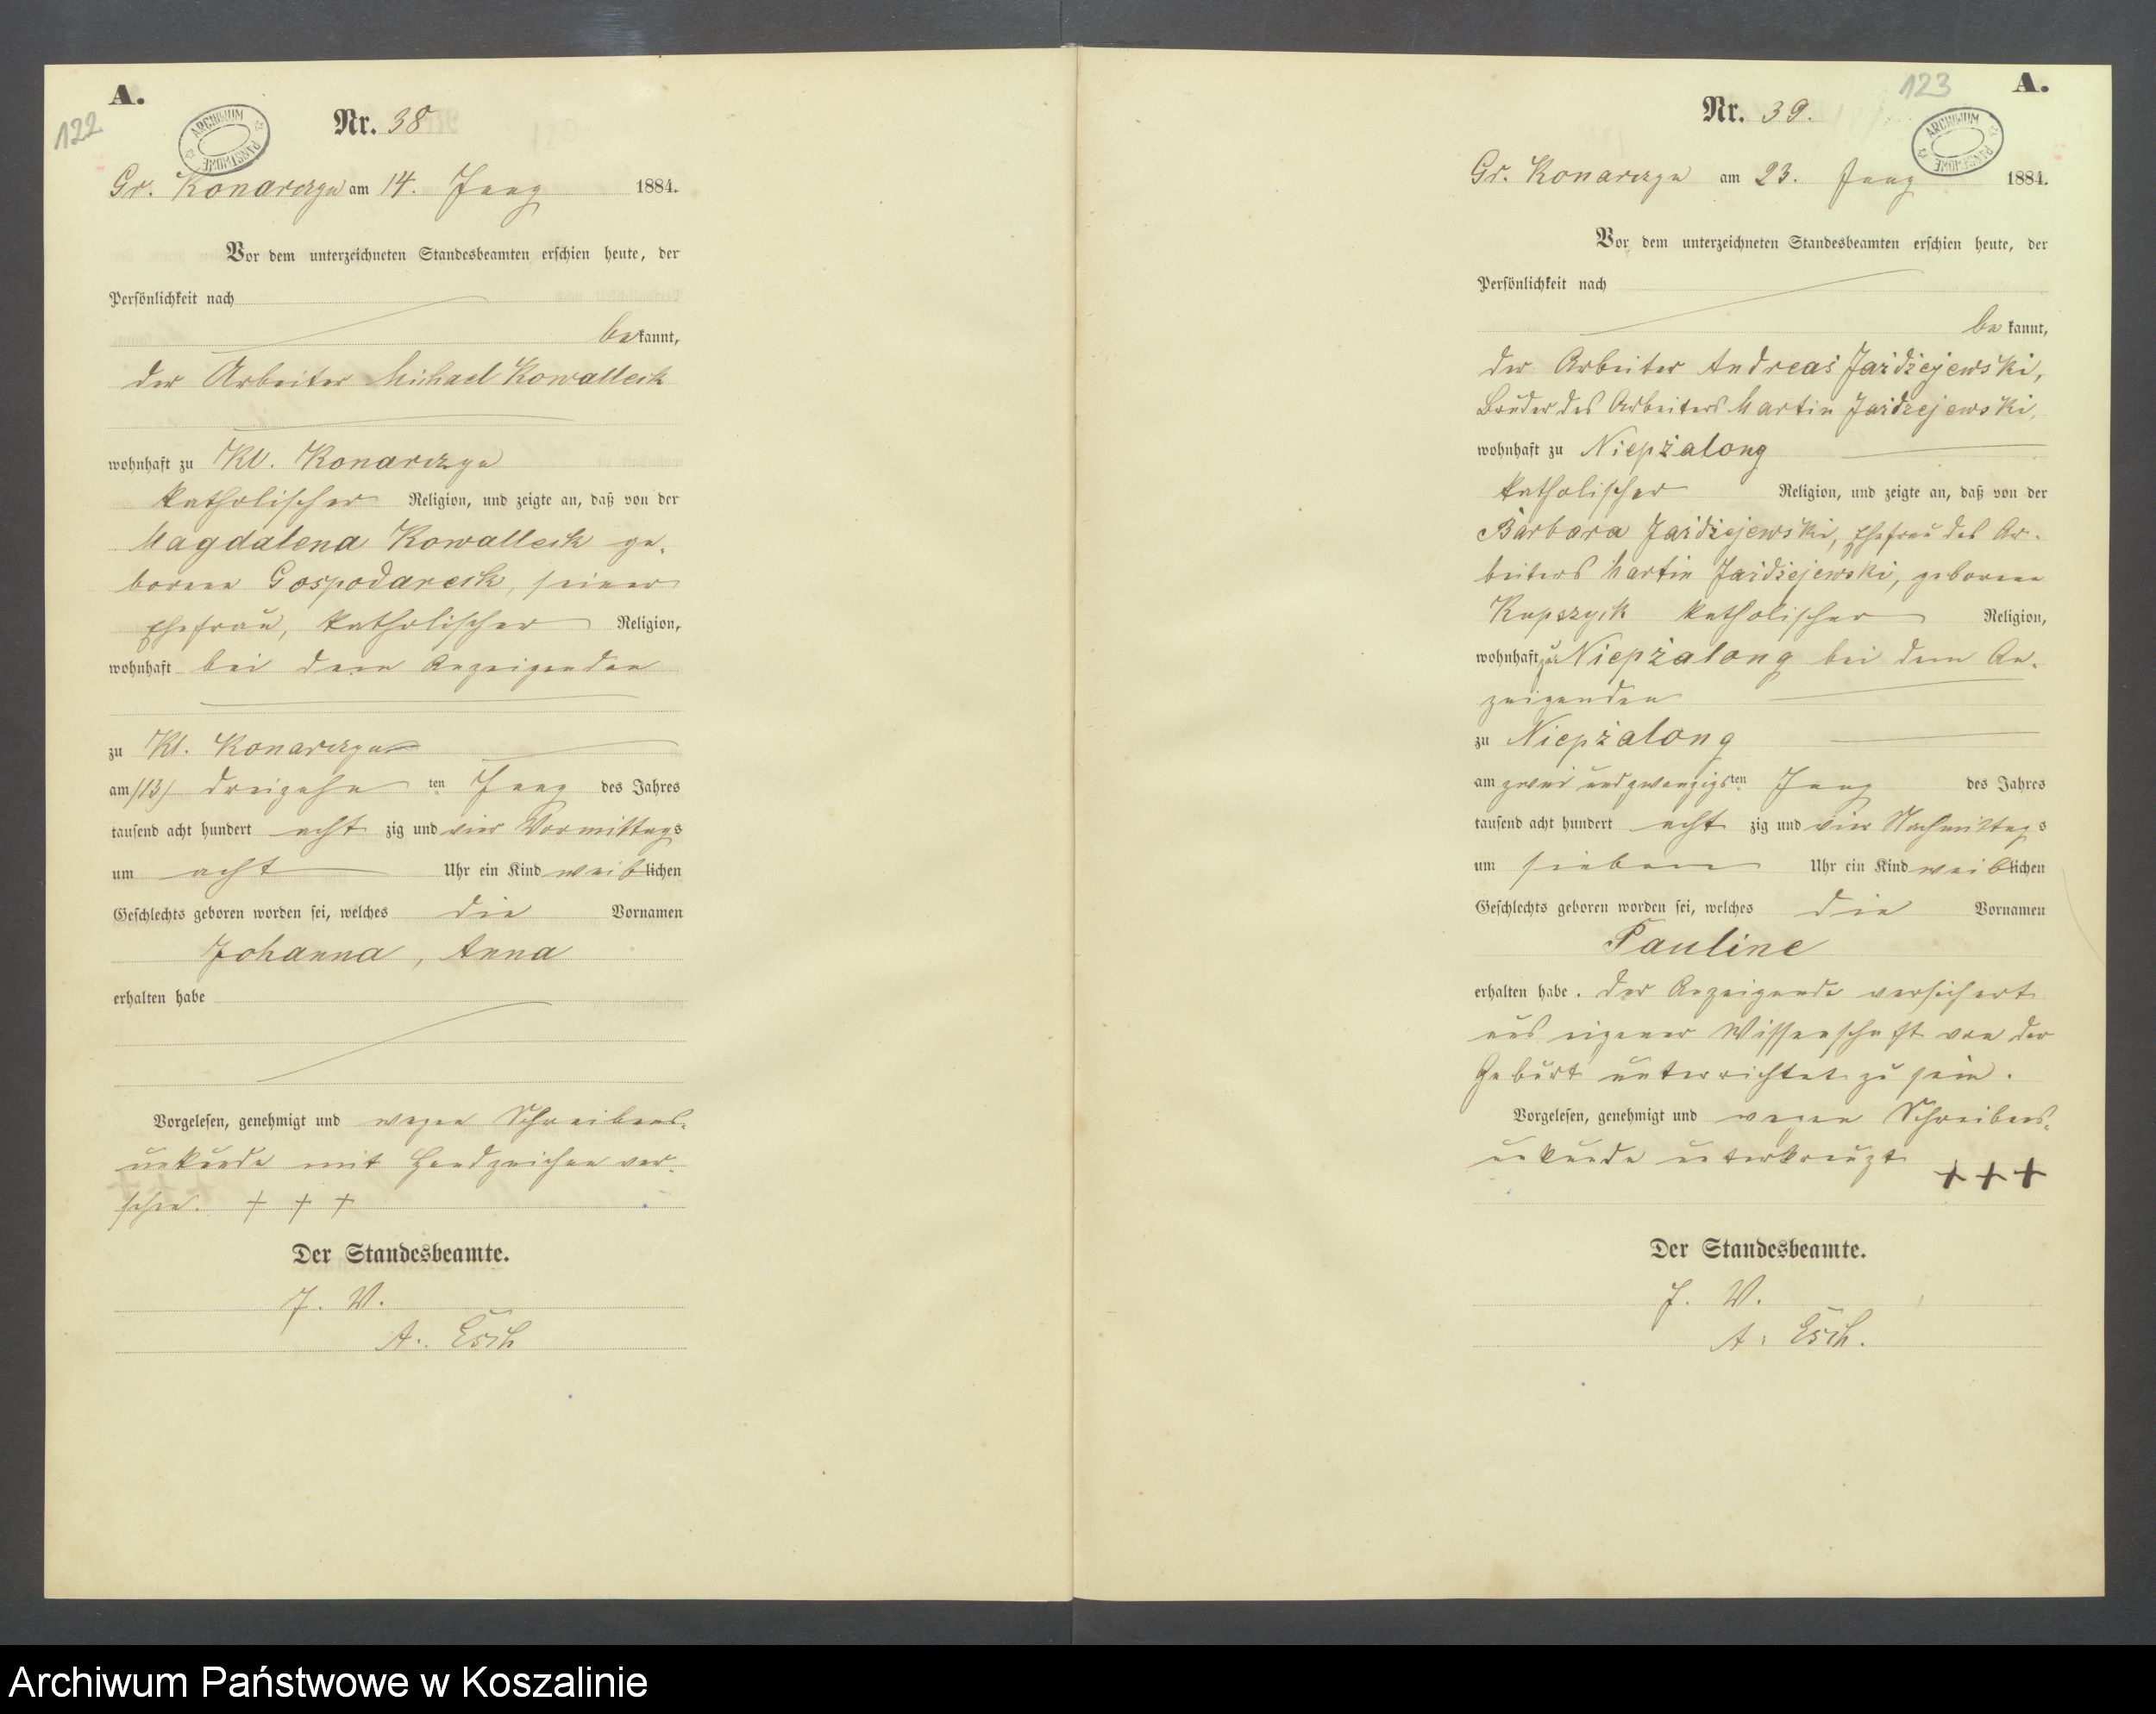 A.
122
ARCHIWUM PAŃSTWOWE
Nr. 38
Gr. Konarczyn am 14. Juny 1884.
Vor dem unterzeichneten Standesbeamten erschien heute, der
Persönlichkeit nach
bekannt,
der Arbeiter Michael Kowalleck
wohnhaft zu Kl. Konarczyn
katholischer Religion, und zeigte an, daß von der
Magdalena Kowalleck ge-
borene Gospodareck, seiner
Ehefrau, katholischer Religion,
wohnhaft bei dem Anzeigenden
zu Kl. Konarczyn
am /13/ dreizehn ten Juny des Jahres
tausend acht hundert acht zig und vier Vormittags
um acht Uhr ein Kind weiblichen
Geschlechts geboren worden sei, welches die Vornamen
Johanna, Anna
erhalten habe
Vorgelesen, genehmigt und wegen Schreibens-
unkunde mit Handzeichen ver-
sehen. + + +
Der Standesbeamte.
J. V.
A. Esch
123
A.
Nr. 39.
ARCHIWUM PAŃSTWOWE
Gr. Konarczyn am 23. Juny 1884.
Vor dem unterzeichneten Standesbeamten erschien heute, der
Persönlichkeit nach
bekannt,
der Arbeiter Andreas Jażdżejewski,
Bruder des Arbeiters Martin Jażdzejewski,
wohnhaft zu Niepżalong
katholischer Religion, und zeigte an, daß von der
Barbara Jażdżejewski, Ehefrau des Ar-
beiters Martin Jażdżejewski, geborene
Kupszyck katholischer Religion,
wohnhaft zu Niepżalong bei dem An-
zeigenden
zu Niepżalong
am zwei und zwanzigsten Juny des Jahres
tausend acht hundert acht zig und vier Nachmittags
um sieben Uhr ein Kind weiblichen
Geschlechts geboren worden sei, welches die Vornamen
Pauline
erhalten habe. Der Anzeigende versichert
aus eigener Wissenschaft von der
Geburt unterrichtet zu sein.
Vorgelesen, genehmigt und wegen Schreibens-
unkunde unterkreuzt +++
Der Standesbeamte.
J. V.
A. Esch.
Archiwum Państwowe w Koszalinie